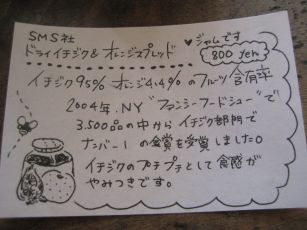 SMS社
♥ジャムです
ドライイチジク&オレンジスプレッド
800 yen
イチジク95% オレンジ4.4%のフルーツ含有率
2004年、NY "ファンシーフードショー"で
3.500品の中からイチジク部門で
ナンバー1の金賞を受賞しました。
イチジクのプチプチとして食感が
やみつきです。